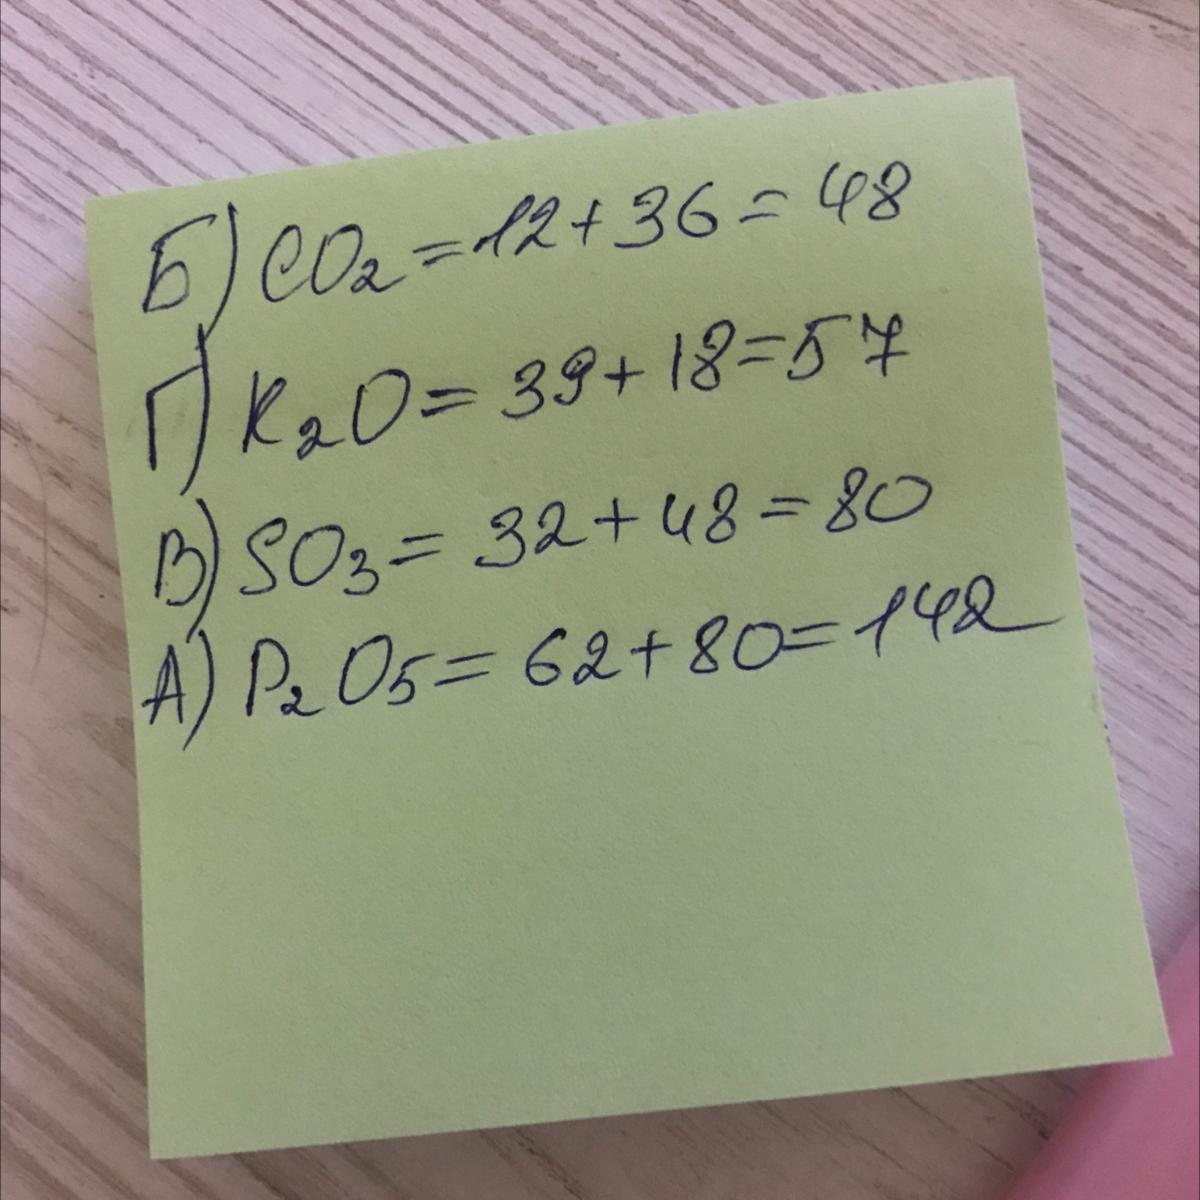 Б) CO₂ = 12 + 36 = 48
Г) K₂O = 39 + 18 = 57
В) SO₃ = 32 + 48 = 80
А) P₂O₅ = 62 + 80 = 142